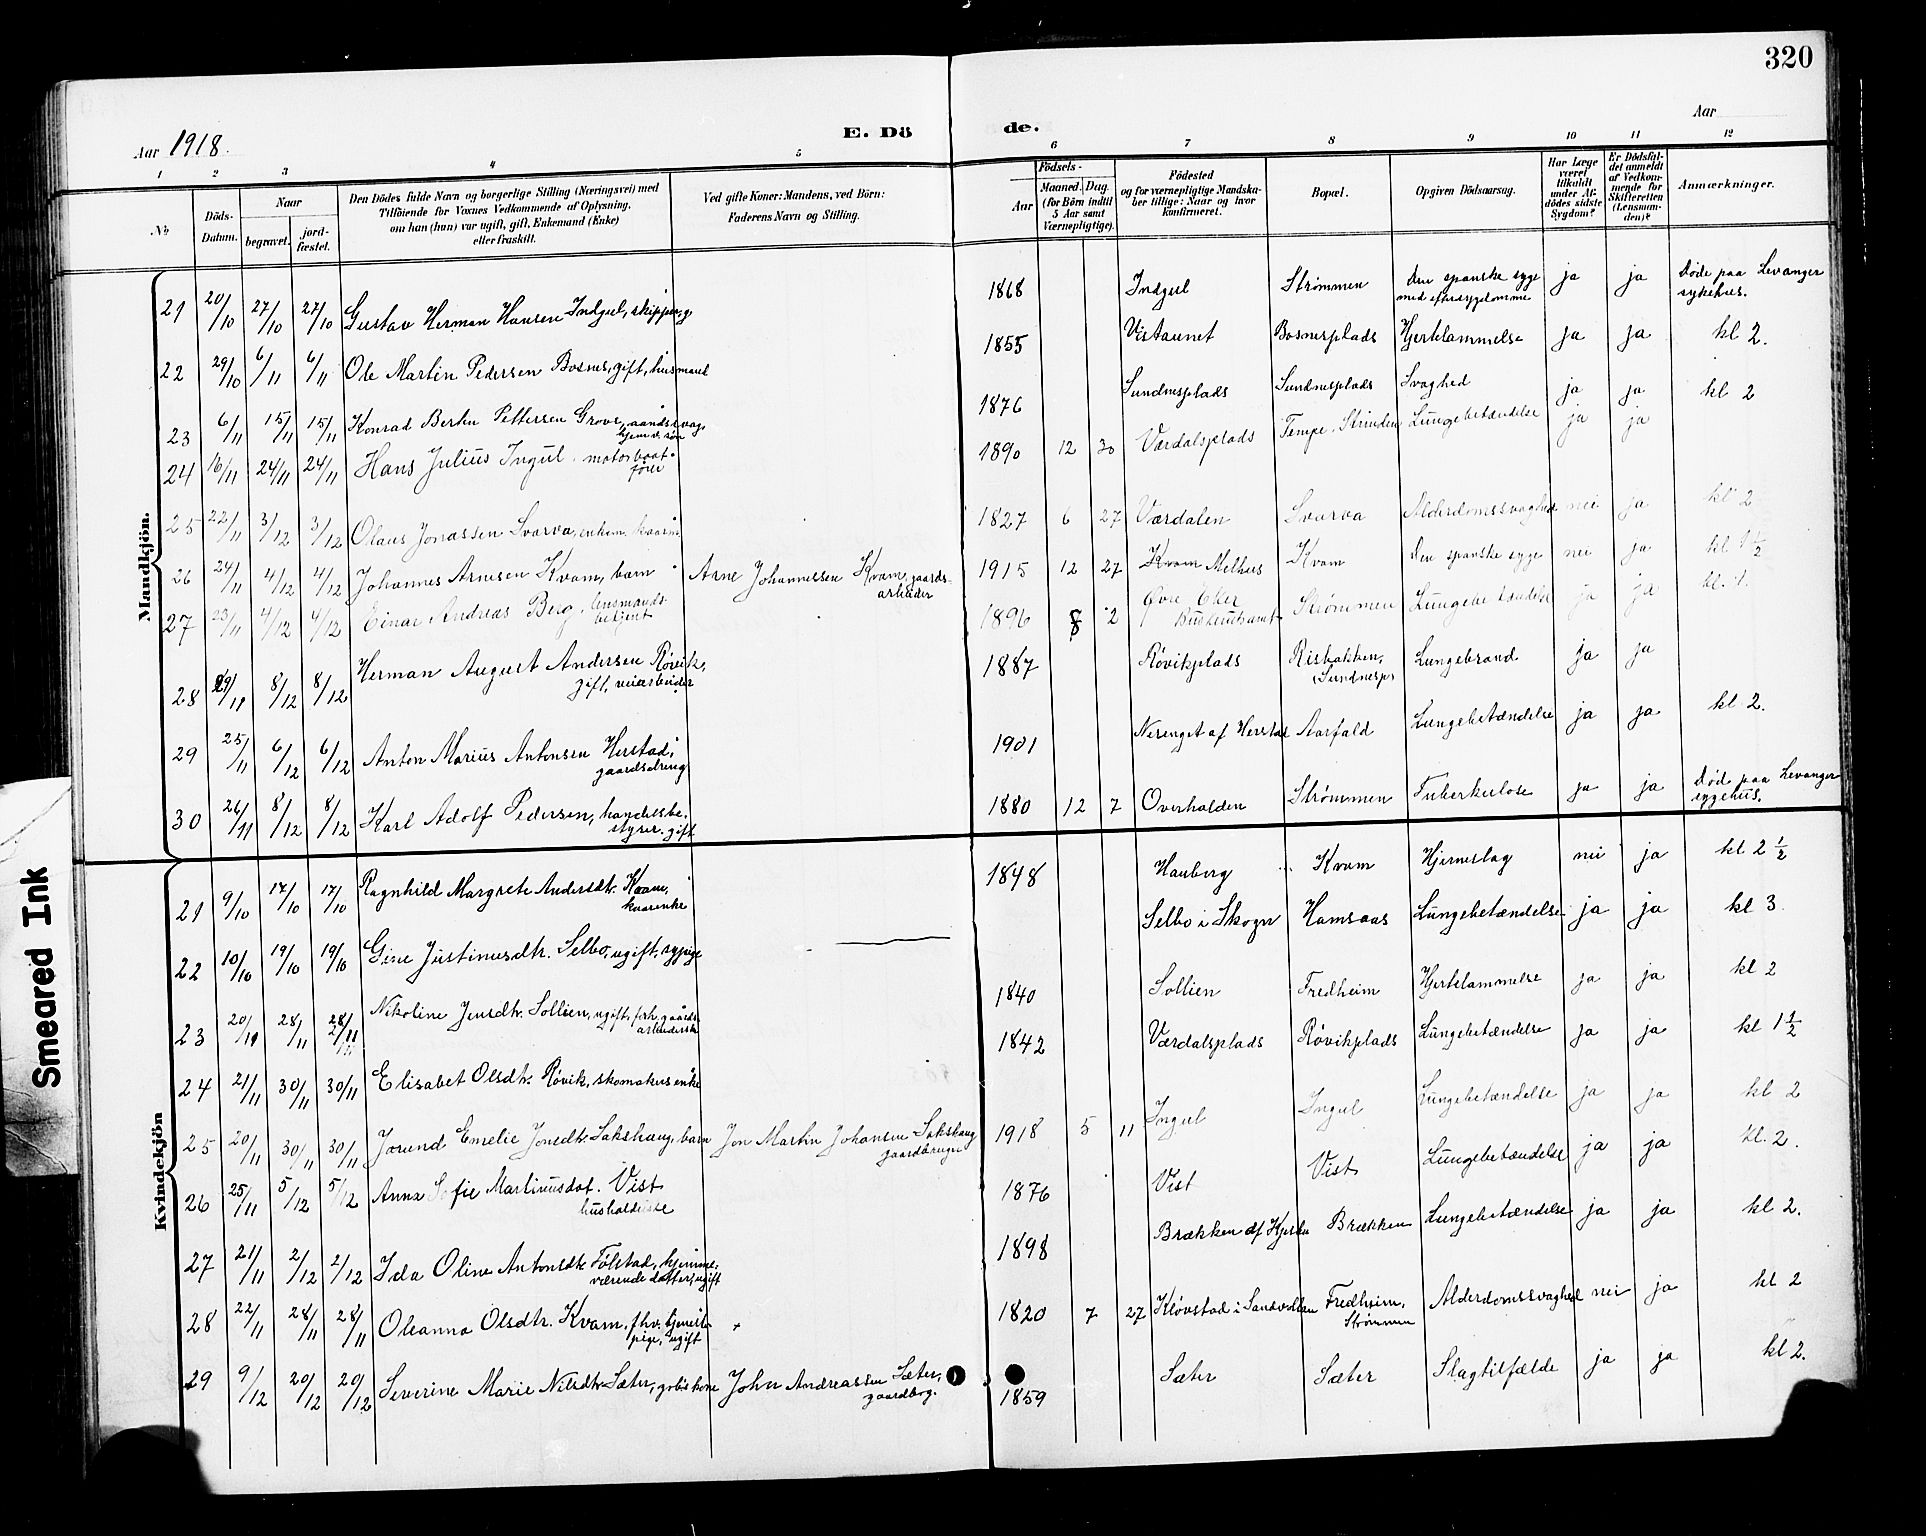 320
Aar 1918.
E. Dö de.
Aar
1 2 3 4 5 6 7 8 9 10 11 12
No
Döds-Datum.
Naar
begravet.
jord-fæstet.
Den Dödes fulde Navn og borgerlige Stilling (Næringsvei) med
Tilföiende for Voxnes Vedkommende af Oplysning,
om han (hun) var ugift, gift, Enkemand (Enke)
eller fraskilt.
Ved gifte Koner: Mandens, ved Börn:
Faderens Navn og Stilling.
Födsels-
Aar
Maaned. Dag.
(for Börn indtil
5 Aar samt
Værnepligtige).
Födested
og for værnepligtige Mandska-
ber tillige: Naar og hvor
konfirmeret.
Bopæl.
Opgiven Dödsaarsag.
Har Læge
været
tilkaldt
under Af-
dödes sidste
Sygdom?
Er Dödsfal-
det anmeldt
af Vedkom-
mende for
Skifteretten
(Lensman-
den)?
Anmærkninger.
Mandkjön.
21 20/10 27/10 27/10 Gustav Herman Hansen Indgul, skipper, g. 1868 Indgul Strømmen Den spanske syge med eftersygdomme ja ja Døde paa Levanger sykehus.
22 29/10 6/11 6/11 Ole Martin Pedersen Bosnes, gift, husmand 1855 Vistaunet Bosnesplads Hjertelammelse ja ja kl 2.
23 6/11 15/11 15/11 Konrad Bertin Pettersen Grove, aandssvag, hjemv. søn 1876 Sundnesplads Sundnesplads Svaghed ja ja kl 2
24 16/11 24/11 24/11 Hans Julius Ingul. motorbaat-fører 1890 12 30 Værdalsplads Tempe. Strinden Lungebetændelse ja ja
25 22/11 3/12 3/12 Olaus Jonassen Svarva, enkem. kaarm. 1827 6 27 Værdalen Svarva Alderdomssvaghed nei ja kl 2
26 24/11 4/12 4/12 Johannes Arnesen Kvam, barn Arne Johannessen Kvam, gaards-arbeider 1915 12 27 Kvam Melhus Kvam Den spanske syge nei ja kl 1 1/2
27 23/11 4/12 4/12 Einar Andreas Berg. lensmands-betjent 1896 8 2 Øvre Eker Buskerudsamt Strømmen Lungebetændelse ja ja kl. 1.
28 29/11 8/12 8/12 Herman August Andersen Røvik, gift, veiarbeider 1887 Røvikplads Risbakken, Sundnesp. Lungebrand ja ja
29 25/11 6/12 6/12 Anton Marius Antonsen Herstad, gaardsdreng 1901 Nerenget af Herstad Aarfald Lungebetændelse ja ja kl 2.
30 26/11 8/12 8/12 Karl Adolf Pedersen, handelsbe-styrer. gift 1880 12 7 Overhalden Strømmen Tuberkulose ja ja Død paa Levanger sygehus.
Kvindekjön
21 9/10 17/10 17/10 Ragnhild Margrete Andersdtr. Kvam, kaarenke 1848 Hauberg Kvam Hjerneslag nei ja kl 2 1/2
22 10/10 19/10 19/10 Gine Justinusdtr. Selbo, ugift, sypige Selbo i Skogn Hamsaas Lungebetændelse ja ja kl 3
23 20/10 28/11 28/11 Nikoline Jensdtr. Sollien, ugift, forh. gaards-arbeiderske 1840 Sollien Fredheim Hjertelammelse ja ja kl 2
24 21/11 30/11 30/11 Elisabet Olsdtr. Røvik, skomakerenke 1842 Værdalsplads Røvikplads Lungebetændelse ja ja kl 1 1/2
25 20/11 30/11 30/11 Jorund Emelie Jonsdtr. Sakshaug, barn Jon Martin Johansen Sakshaug gaardbruger 1918 5 11 Ingul Ingul Lungebetændelse ja ja kl 2
26 25/11 5/12 5/12 Anna Sofie Martinusdat. Vist husholderske 1876 Vist Vist Lungebetændelse ja ja kl. 2.
27 21/11 2/12 2/12 Ida Oline Antonsdtr Følstad, hjemme-værende datter, ugift 1898 Brækken af Hjelde Brækken Lungebetændelse ja ja kl 2.
28 22/11 28/11 28/11 Oleanna Olsdtr. Kvam, fhv. tjeneste-pige, ugift 1820 7 27 Kløvstad i Sandvollan Fredheim, Strømmen Alderdomssvaghed nei ja kl 2
29 9/12 20/12 20/12 Severine Marie Nilsdtr Sæter, kone John Andreassen Sæter, gaardbrg. 1859 Sæter Sæter Slagtilfælde ja ja kl 2.
Smeared Ink